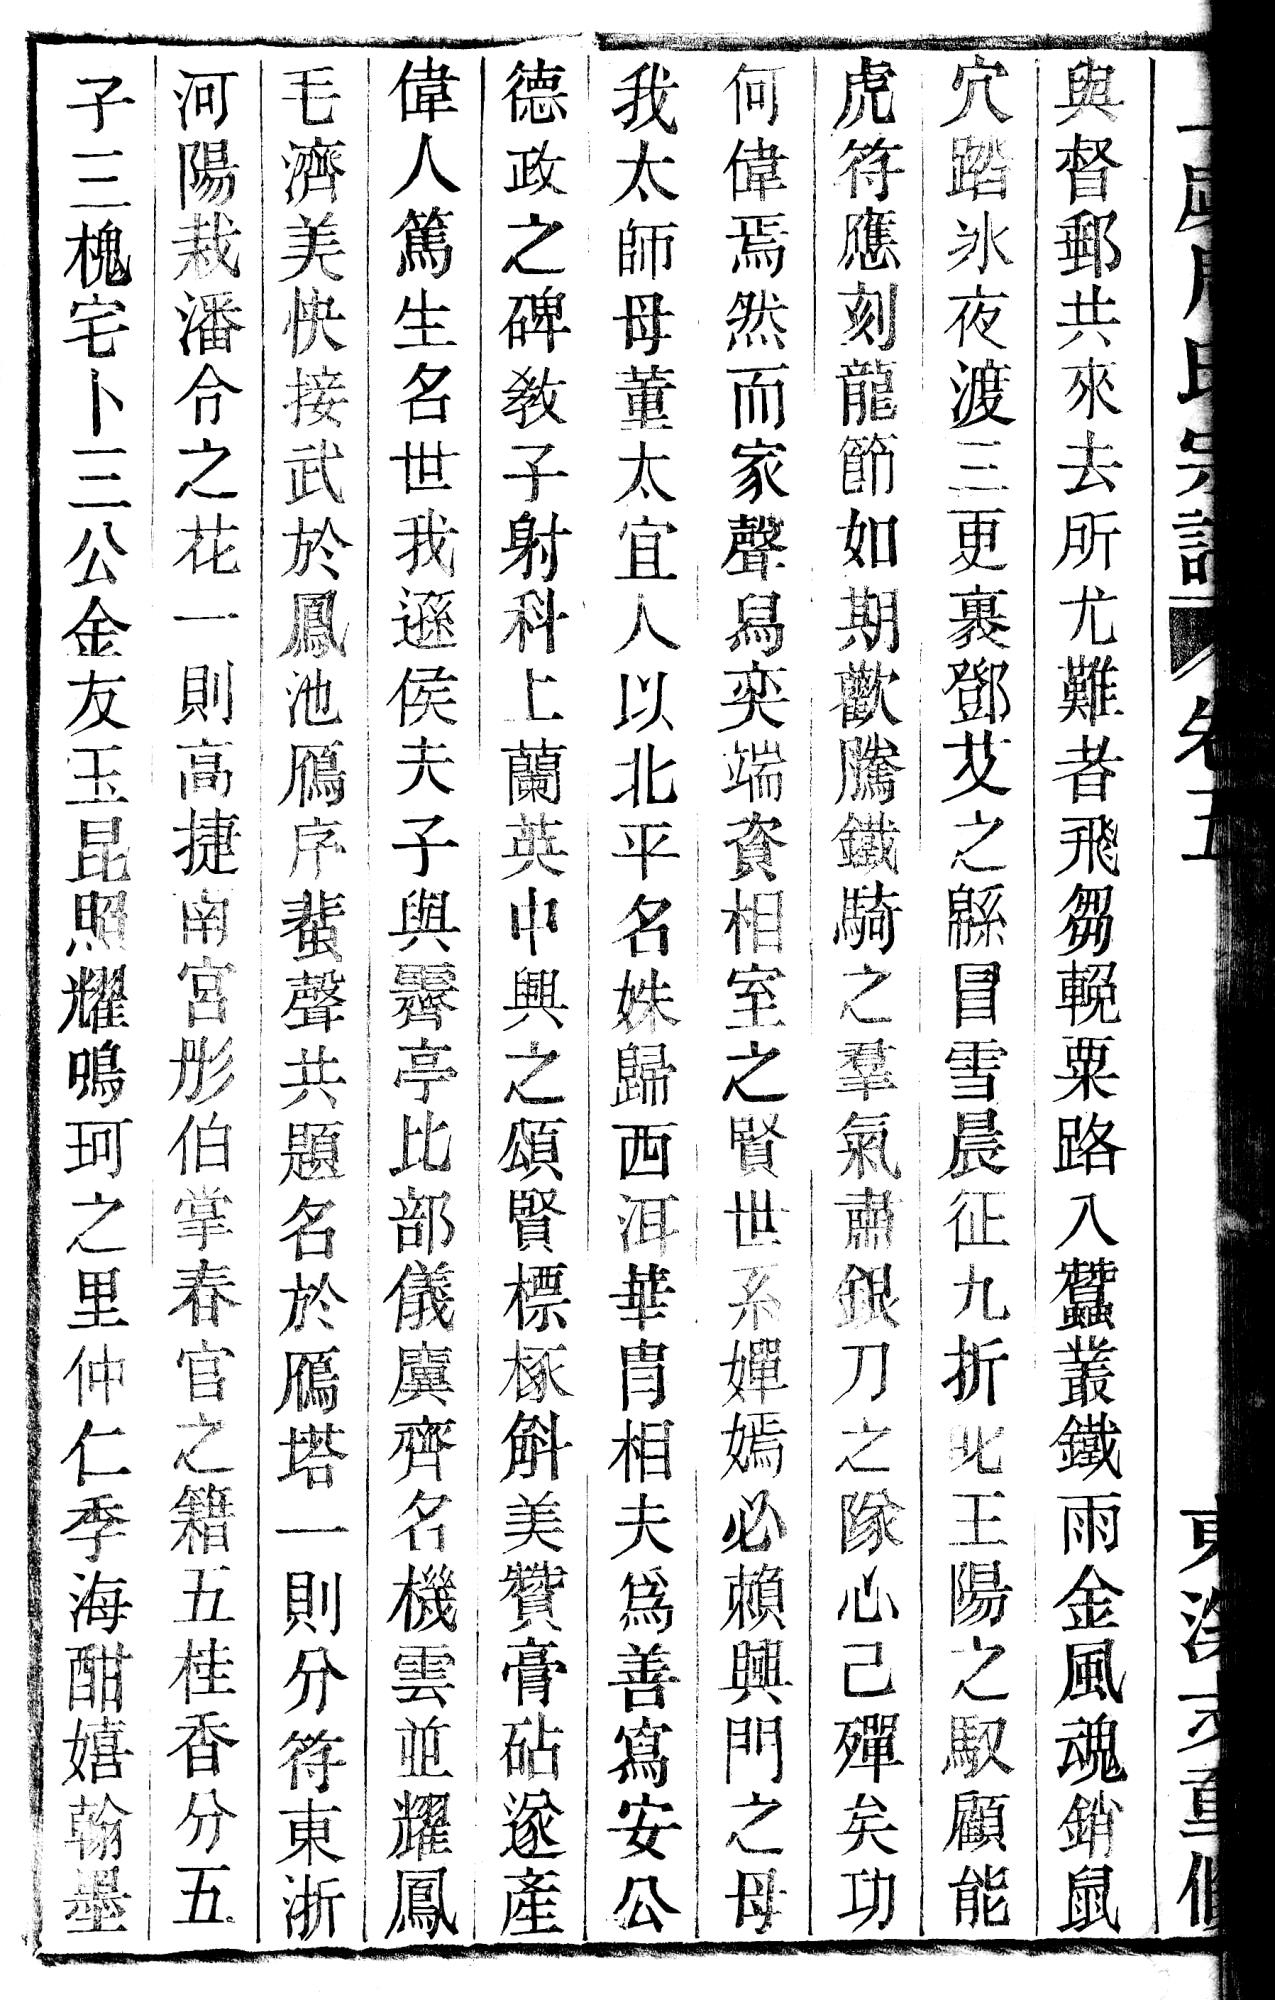 氏宗譜 卷五
與督郵共來去所尤難者飛芻輓粟路入蠶叢鐵雨金風魂銷鼠
穴踏氷夜渡三更裹鄧艾之緜冒雪晨征九折叱王陽之馭顧能
虎符應刻龍節如期歡騰鐵騎之羣氣肅銀刀之隊心已殫矣功
何偉焉然而家聲舄奕端資相室之賢世系嬋嫣必賴興門之母
我太師母董太宜人以北平名姝歸西洱華胄相夫爲善寫安公
德政之碑敎子射科上蘭英中興之頌賢標椓斛美贊膏砧遂產
偉人篤生名世我遜侯夫子與霽亭比部儀廙齊名機雲並耀鳳
毛濟美快接武於鳳池鴈序蜚聲共題名於鴈塔一則分符東浙
河陽栽潘令之花一則高捷南宮彤伯掌春官之籍五桂香分五
子三槐宅卜三公金友玉昆照耀鳴珂之里仲仁季海酣嬉翰墨